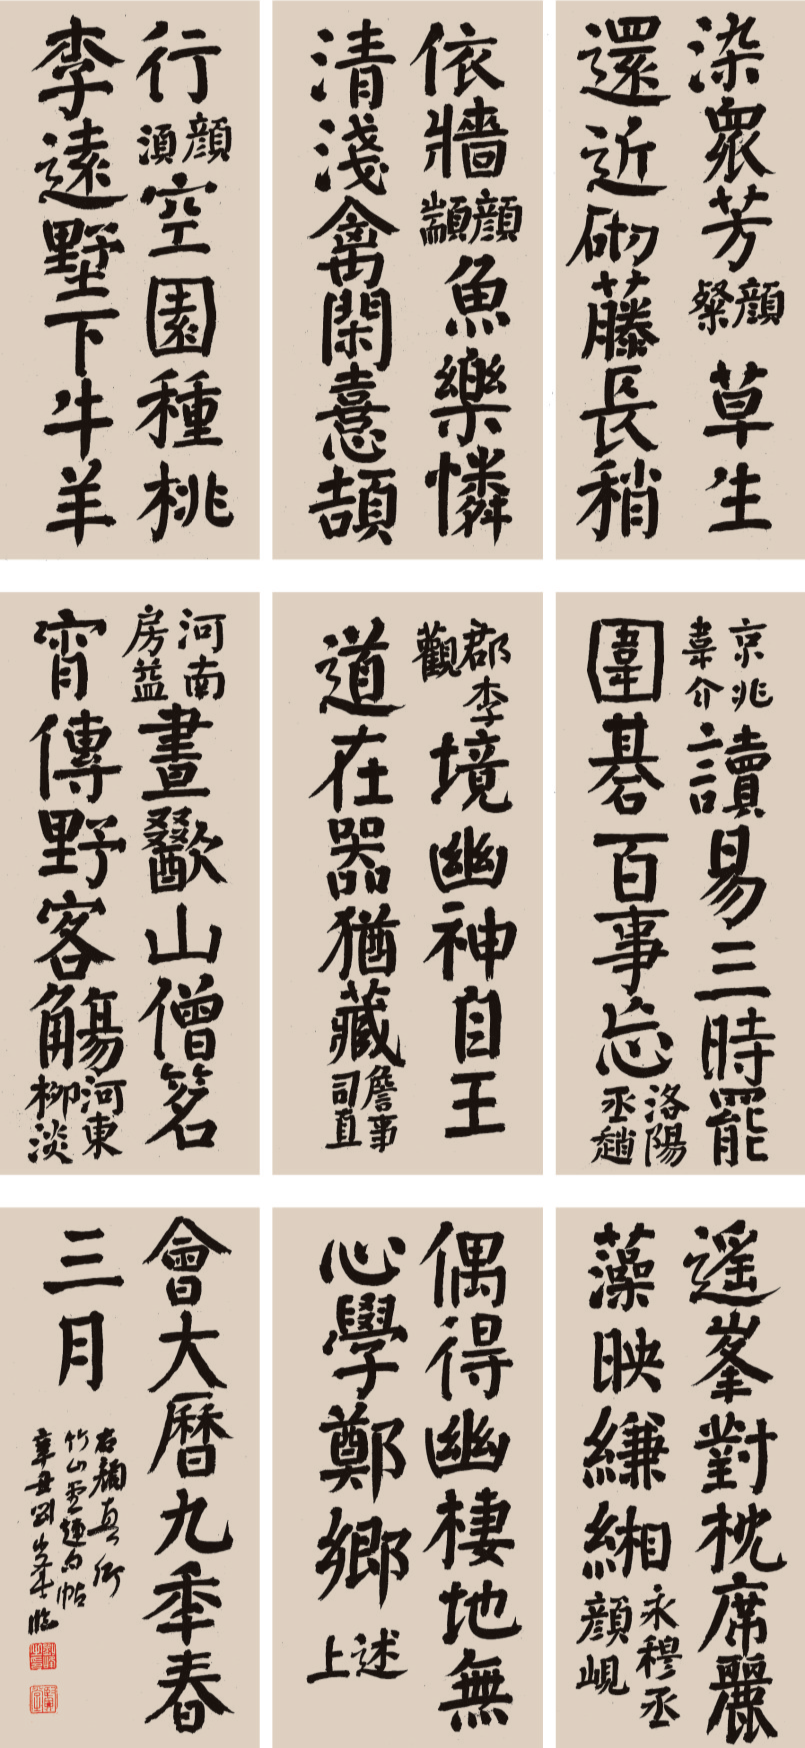 染眾芳顔粲草生
還近砌藤長稍
依牆顔顓魚樂憐
清淺禽閑憙頡
行顔須空園種桃
李遠墅下牛羊
京兆韋介讀易三時罷
圍碁百事忘洛陽丞趙
郡李觀境幽神自王
道在器猶藏詹事司直
河南房益晝歠山僧茗
宵傳野客觴河東柳淡
遥峯對枕席麗
藻映縑緗永穆丞顔峴
偶得幽棲地無
心學鄭鄉述上
會大曆九季春
三月
右顔真卿
竹山堂連句帖
辛丑劉臨